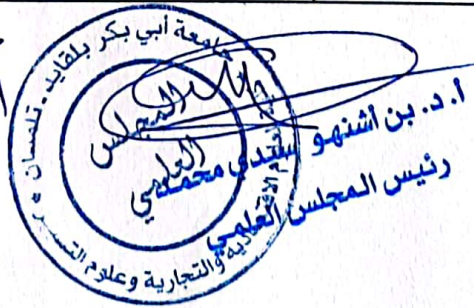 جامعة أبي بكر بلقايد - تلمسان
المجلس
العلمي
والتجارية وعلوم
أ. د. بن أشنهو سيدي محمد
رئيس المجلس العلمي